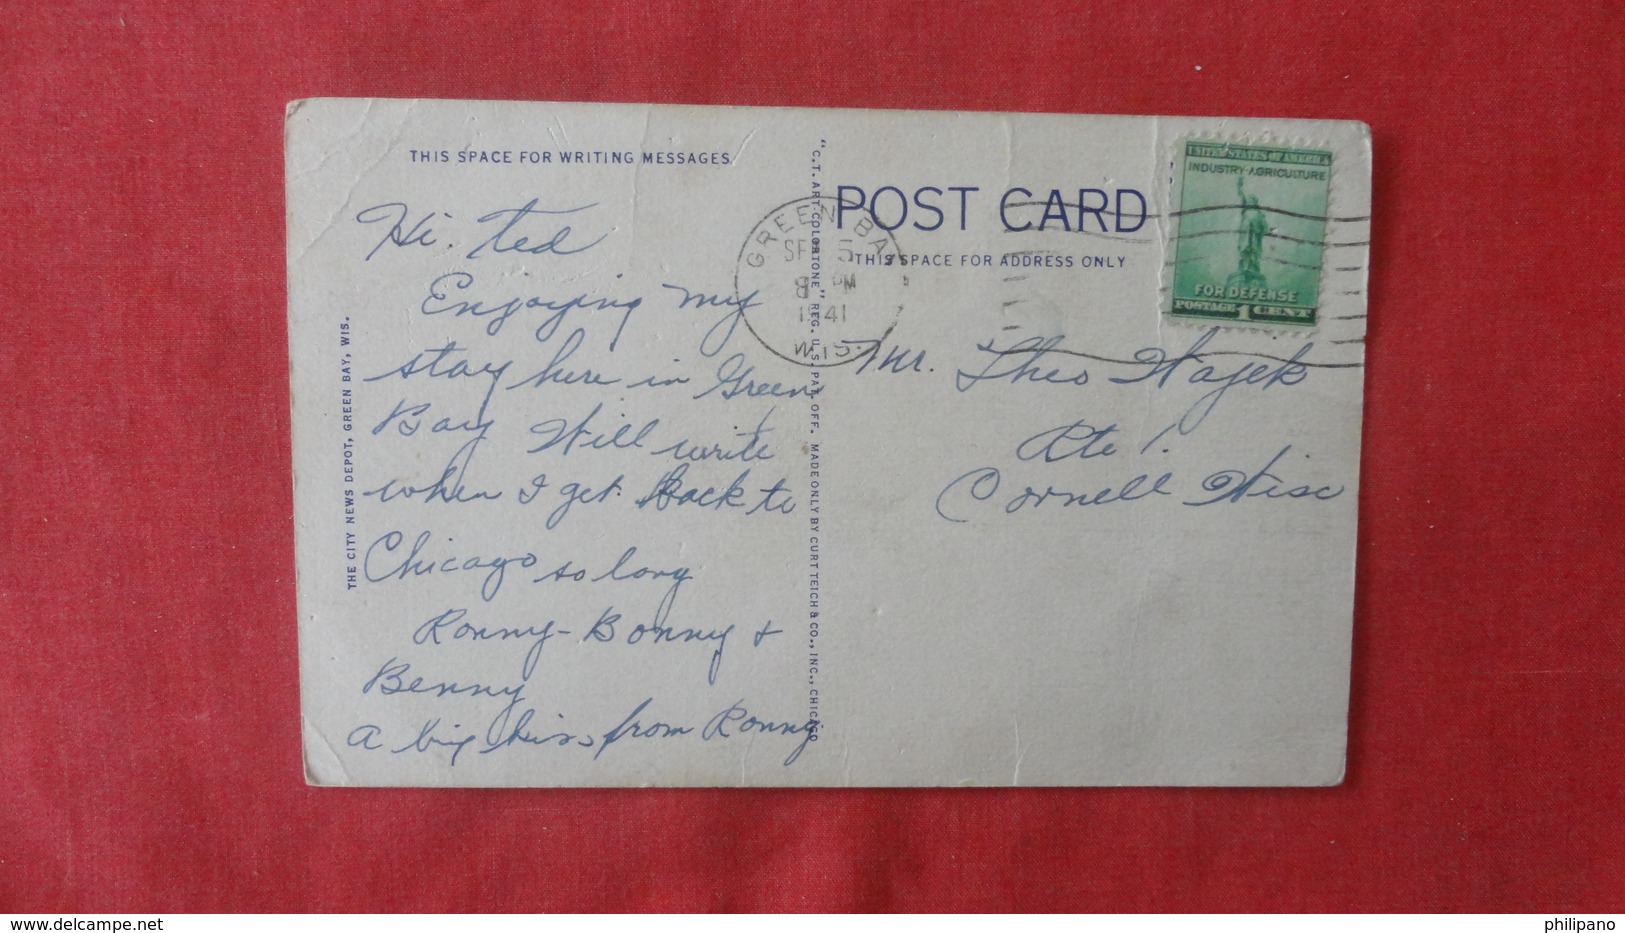 THIS SPACE FOR WRITING MESSAGES
Hi. Ted
Enjoying my
stay here in Green
Bay Will write
when I get back to
Chicago so long
Ronny - Bonny +
Benny
a big kiss from Ronny
THE CITY NEWS DEPOT, GREEN BAY, WIS.
"C.T. ART-COLORTONE" REG. U.S. PAT. OFF. MADE ONLY BY CURT TEICH & CO., INC., CHICAGO
GREEN BAY
SEP 5
8 PM
1941
WIS.
POST CARD
THIS SPACE FOR ADDRESS ONLY
UNITED STATES OF AMERICA
INDUSTRY-AGRICULTURE
FOR DEFENSE
POSTAGE 1 CENT
Mr. Theo Hajek
Rte 1.
Cornell Wisc
philipano